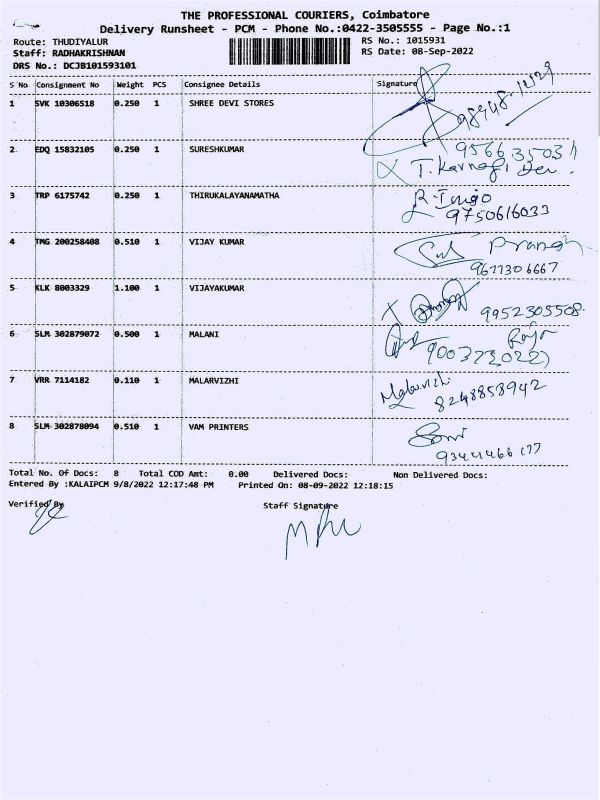 THE PROFESSIONAL COURIERS, Coimbatore
Delivery Runsheet - PCM - Phone No.:0422-3505555 - Page No.:1
Route: THUDIYALUR
RS No.: 1015931
Staff: RADHAKRISHNAN
RS Date: 08-Sep-2022
DRS No.: DCJB101593101
S No Consignment No Weight PCS Consignee Details Signature
1 SVK 10306518 0.250 1 SHREE DEVI STORES
2 EDQ 15832105 0.250 1 SURESHKUMAR
9566350311
T. Karnagi Dev.
3 TRP 6175742 0.250 1 THIRUKALAYANAMATHA
9750616033
4 TMG 200258408 0.510 1 VIJAY KUMAR
9677306667
5 KLK 8003329 1.100 1 VIJAYAKUMAR
9952305508
6 SLM 302879072 0.500 1 MALANI
Raja
7 VRR 7114182 0.110 1 MALARVIZHI
Malarvizhi
8248858942
8 SLM 302878094 0.510 1 VAM PRINTERS
9344466177
Total No. Of Docs: 8 Total COD Amt: 0.00 Delivered Docs: Non Delivered Docs:
Entered By :KALAIPCM 9/8/2022 12:17:48 PM Printed On: 08-09-2022 12:18:15
Verified By Staff Signature